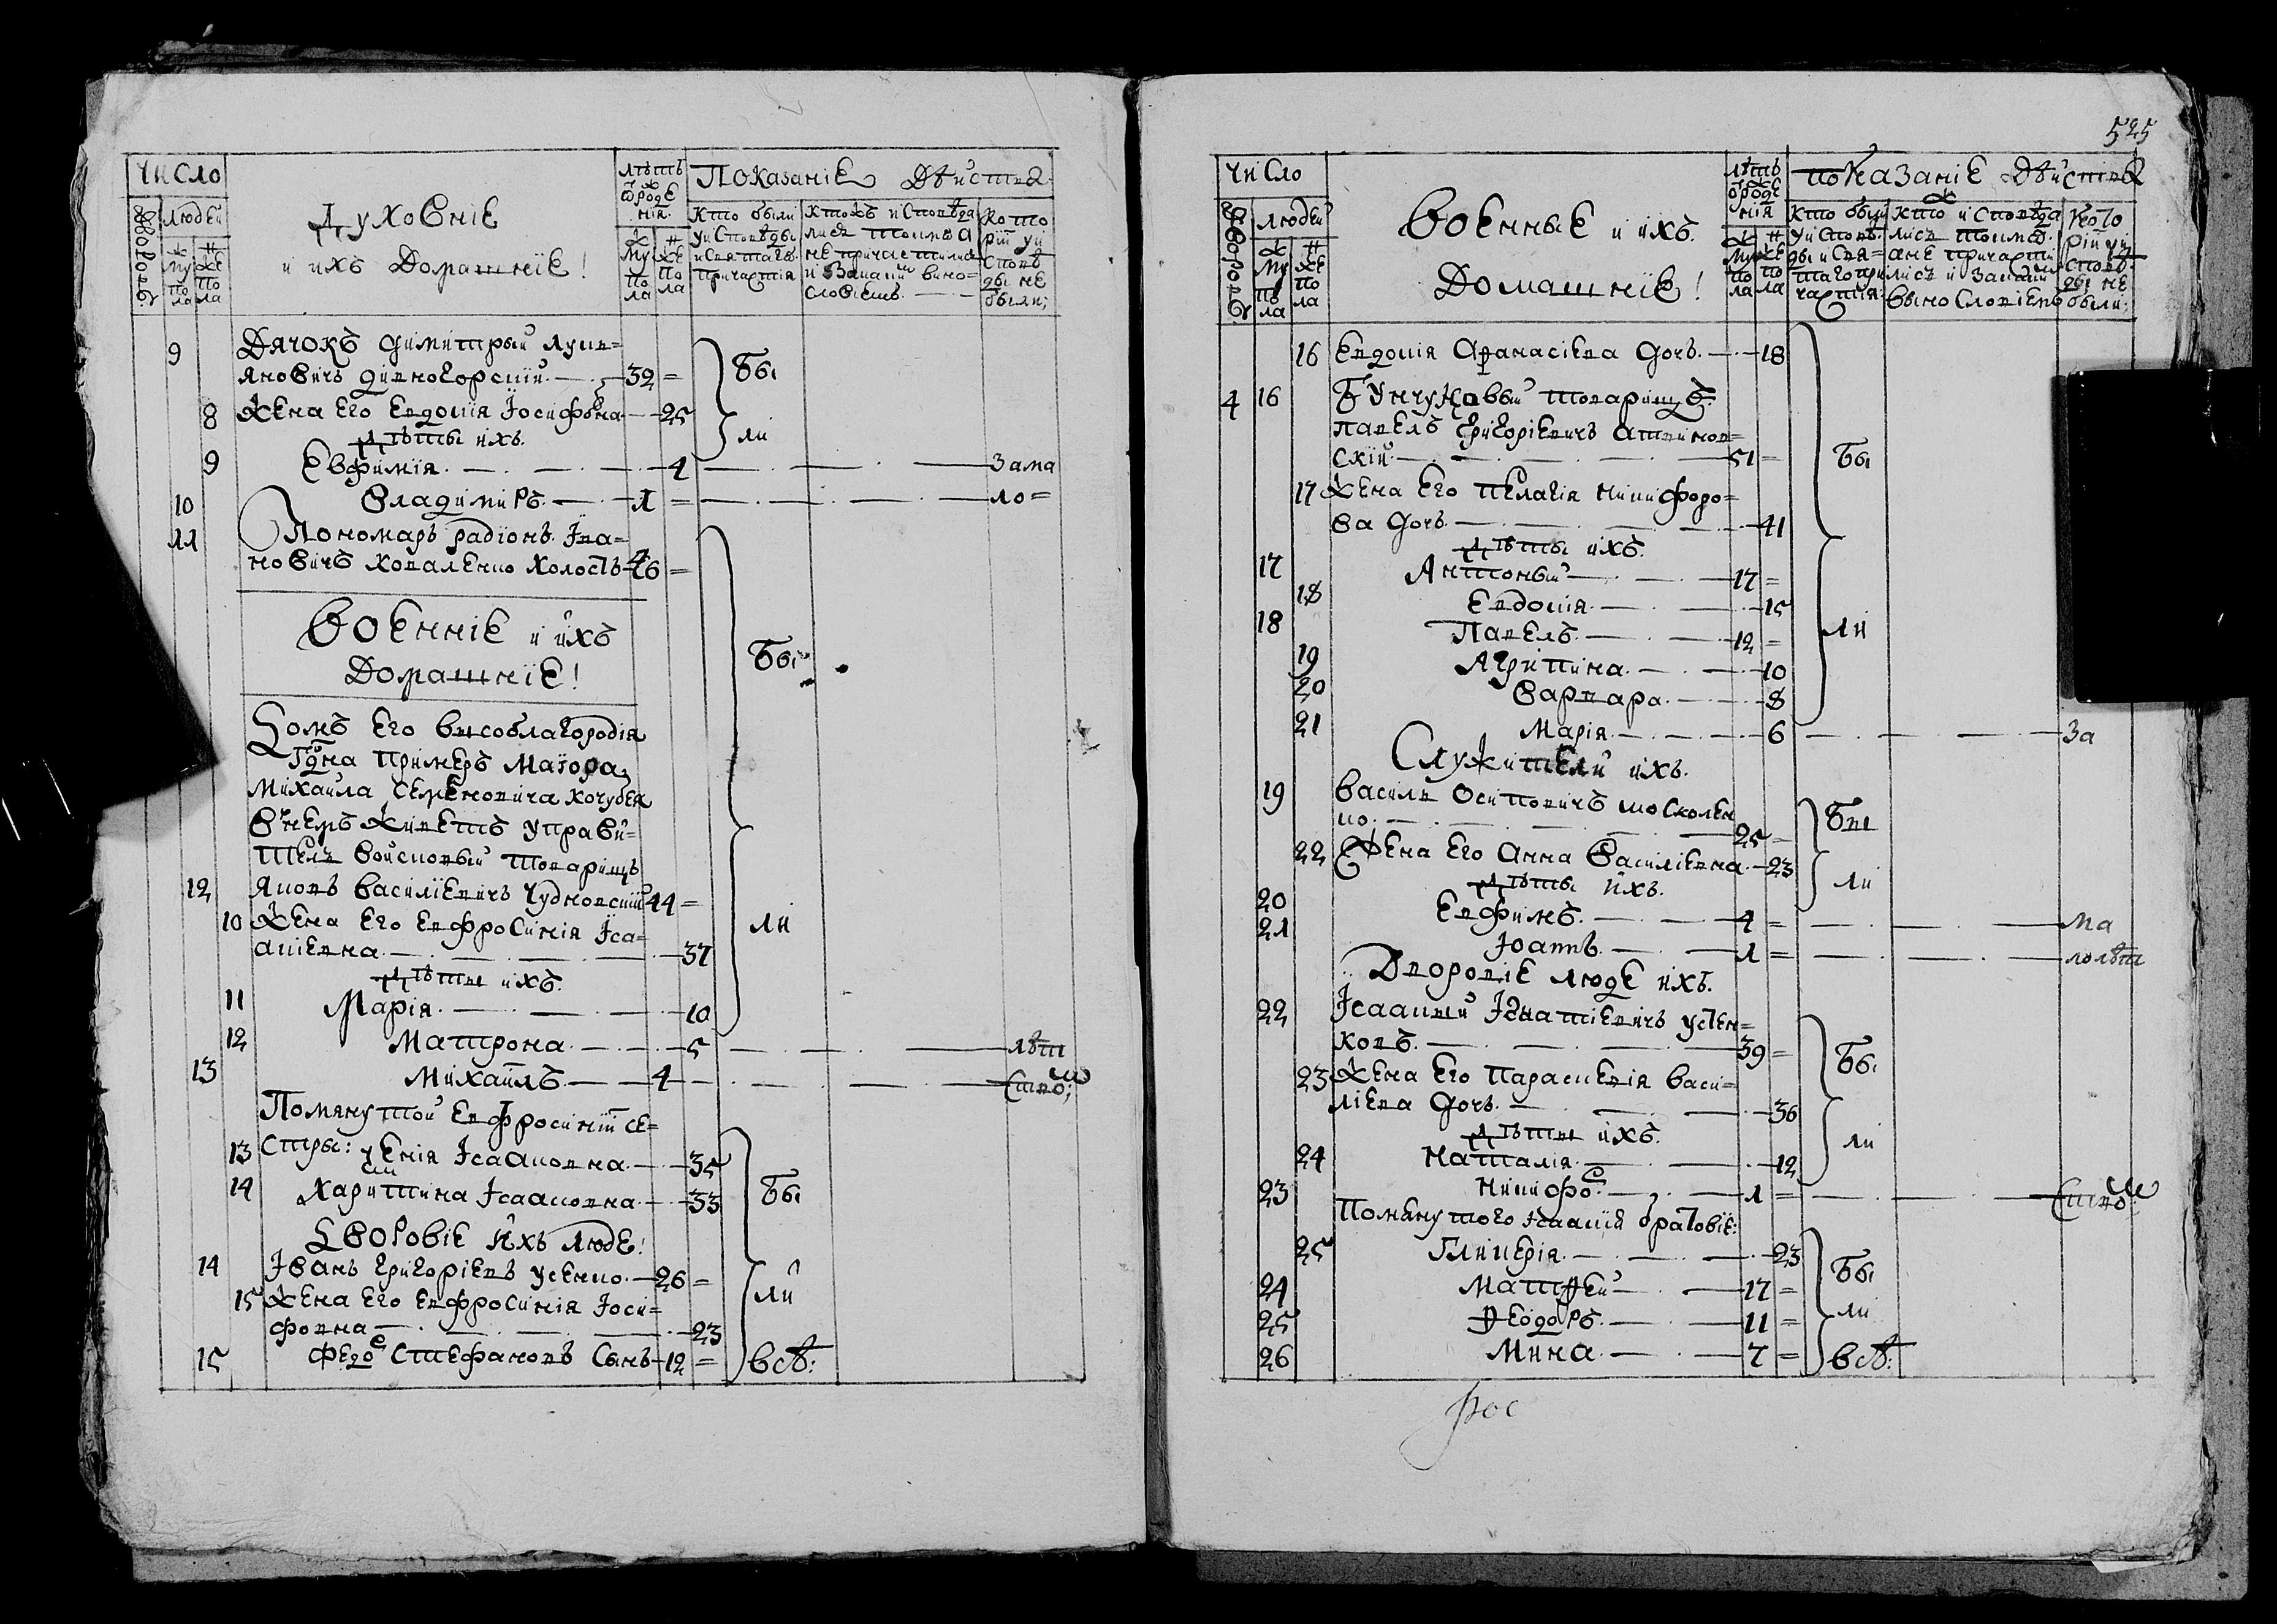 Число
Людей
Дворовъ
Муже пола
Жен пола
Духовніе
и ихъ Домашніе!
Лѣтъ ѿ рожденія
Муже пола
Же пола
Показаніе Дѣйства
Кто были у исповѣды и святаго причастія
Кто жъ исповѣдалися токмо а не причастилися и за какимъ винословіемъ
Которіи у исповѣды не были;
9 Дячокъ Димитрый Лукя=
яновичъ Дивногорскій 32 =
8 Жена его Евдокія Іосифовна 25
Дѣты ихъ.
Были
9 Евфимія. 4 За ма
10 Владимиръ. 1 = ло=
11 Пономаръ Радіонъ Ива=
новичъ Коваленко холостъ 26 =
Военніе и ихъ
Домашніе!
Домъ Его высоблагородія
Гдна Примеръ Маіора
Михаила Семеновича Кочубея
В немъ живетъ управи=
телъ войсковый товарищъ
12 Яковъ Василіевичъ Чудновскій 44 =
10 Жена его Евфросинія Іса=
акіевна 37
Дѣты ихъ.
11 Марія. 10
Были
12 Матрона. 5 лѣт
13 Михаилъ. 4 ством;
Помянутой Евфросиніи се=
13 стры: Ксенія Ісааковна 35
14 Харитина Ісааковна 33
Дворовіе ихъ люде!
14 Іванъ Григоріевъ Усенко 26 =
15 Жена его Евфросинія Іоси=
фовна 23
15 Федоръ Стефановъ сынъ 12 =
Были всѣ:
525
Число
Людей
Дворовъ
Муж пола
Же пола
Военные и ихъ
Домашніе!
Лѣтъ ѿ рожде нія
Муж пола
Же пола
Показаніе Дѣйства
Кто были у исповѣды и святаго причастія
Кто жъ исповѣдалися токмо а не причастилися и за какимъ виносло віемъ
Которіи у исповѣды не были:
16 Евдокія Афанасіева дочь. 18
4 16 Бунчуковый товарищъ
Павелъ Григоріевичъ Ативнов=
скій 51 =
17 Жена его Пелагія Никифоро=
ва дочь. 41
Дѣты ихъ.
17 Антоный 17 =
18 Евдокія. 15
18 Павелъ. 12 =
19 Агрипина. 10
20 Варвара. 8
Были
21 Марія. 6 За
Служители ихъ.
19 Василь Осиповичъ Москален
ко. 25 =
22 Жена его Анна Василіевна 23
Были
Дѣты ихъ.
20 Евфимъ. 4 = ма
21 Іоаннъ. 1 = лолѣт
Дворовіе люде ихъ.
22 Ісаакый Ігнатіевичъ Устен=
ковъ. 39 =
23 Жена его Параскевія Васи=
ліева дочь. 36
Дѣты ихъ.
24 Наталія. 12
Были
23 Никифоръ. 1 = ством;
Помянутого Ісаакія братовіе:
25 Гликерія. 23
24 Матфей 17 =
25 Феодоръ. 11 =
26 Мина. 7 =
Были всѣ:
рос